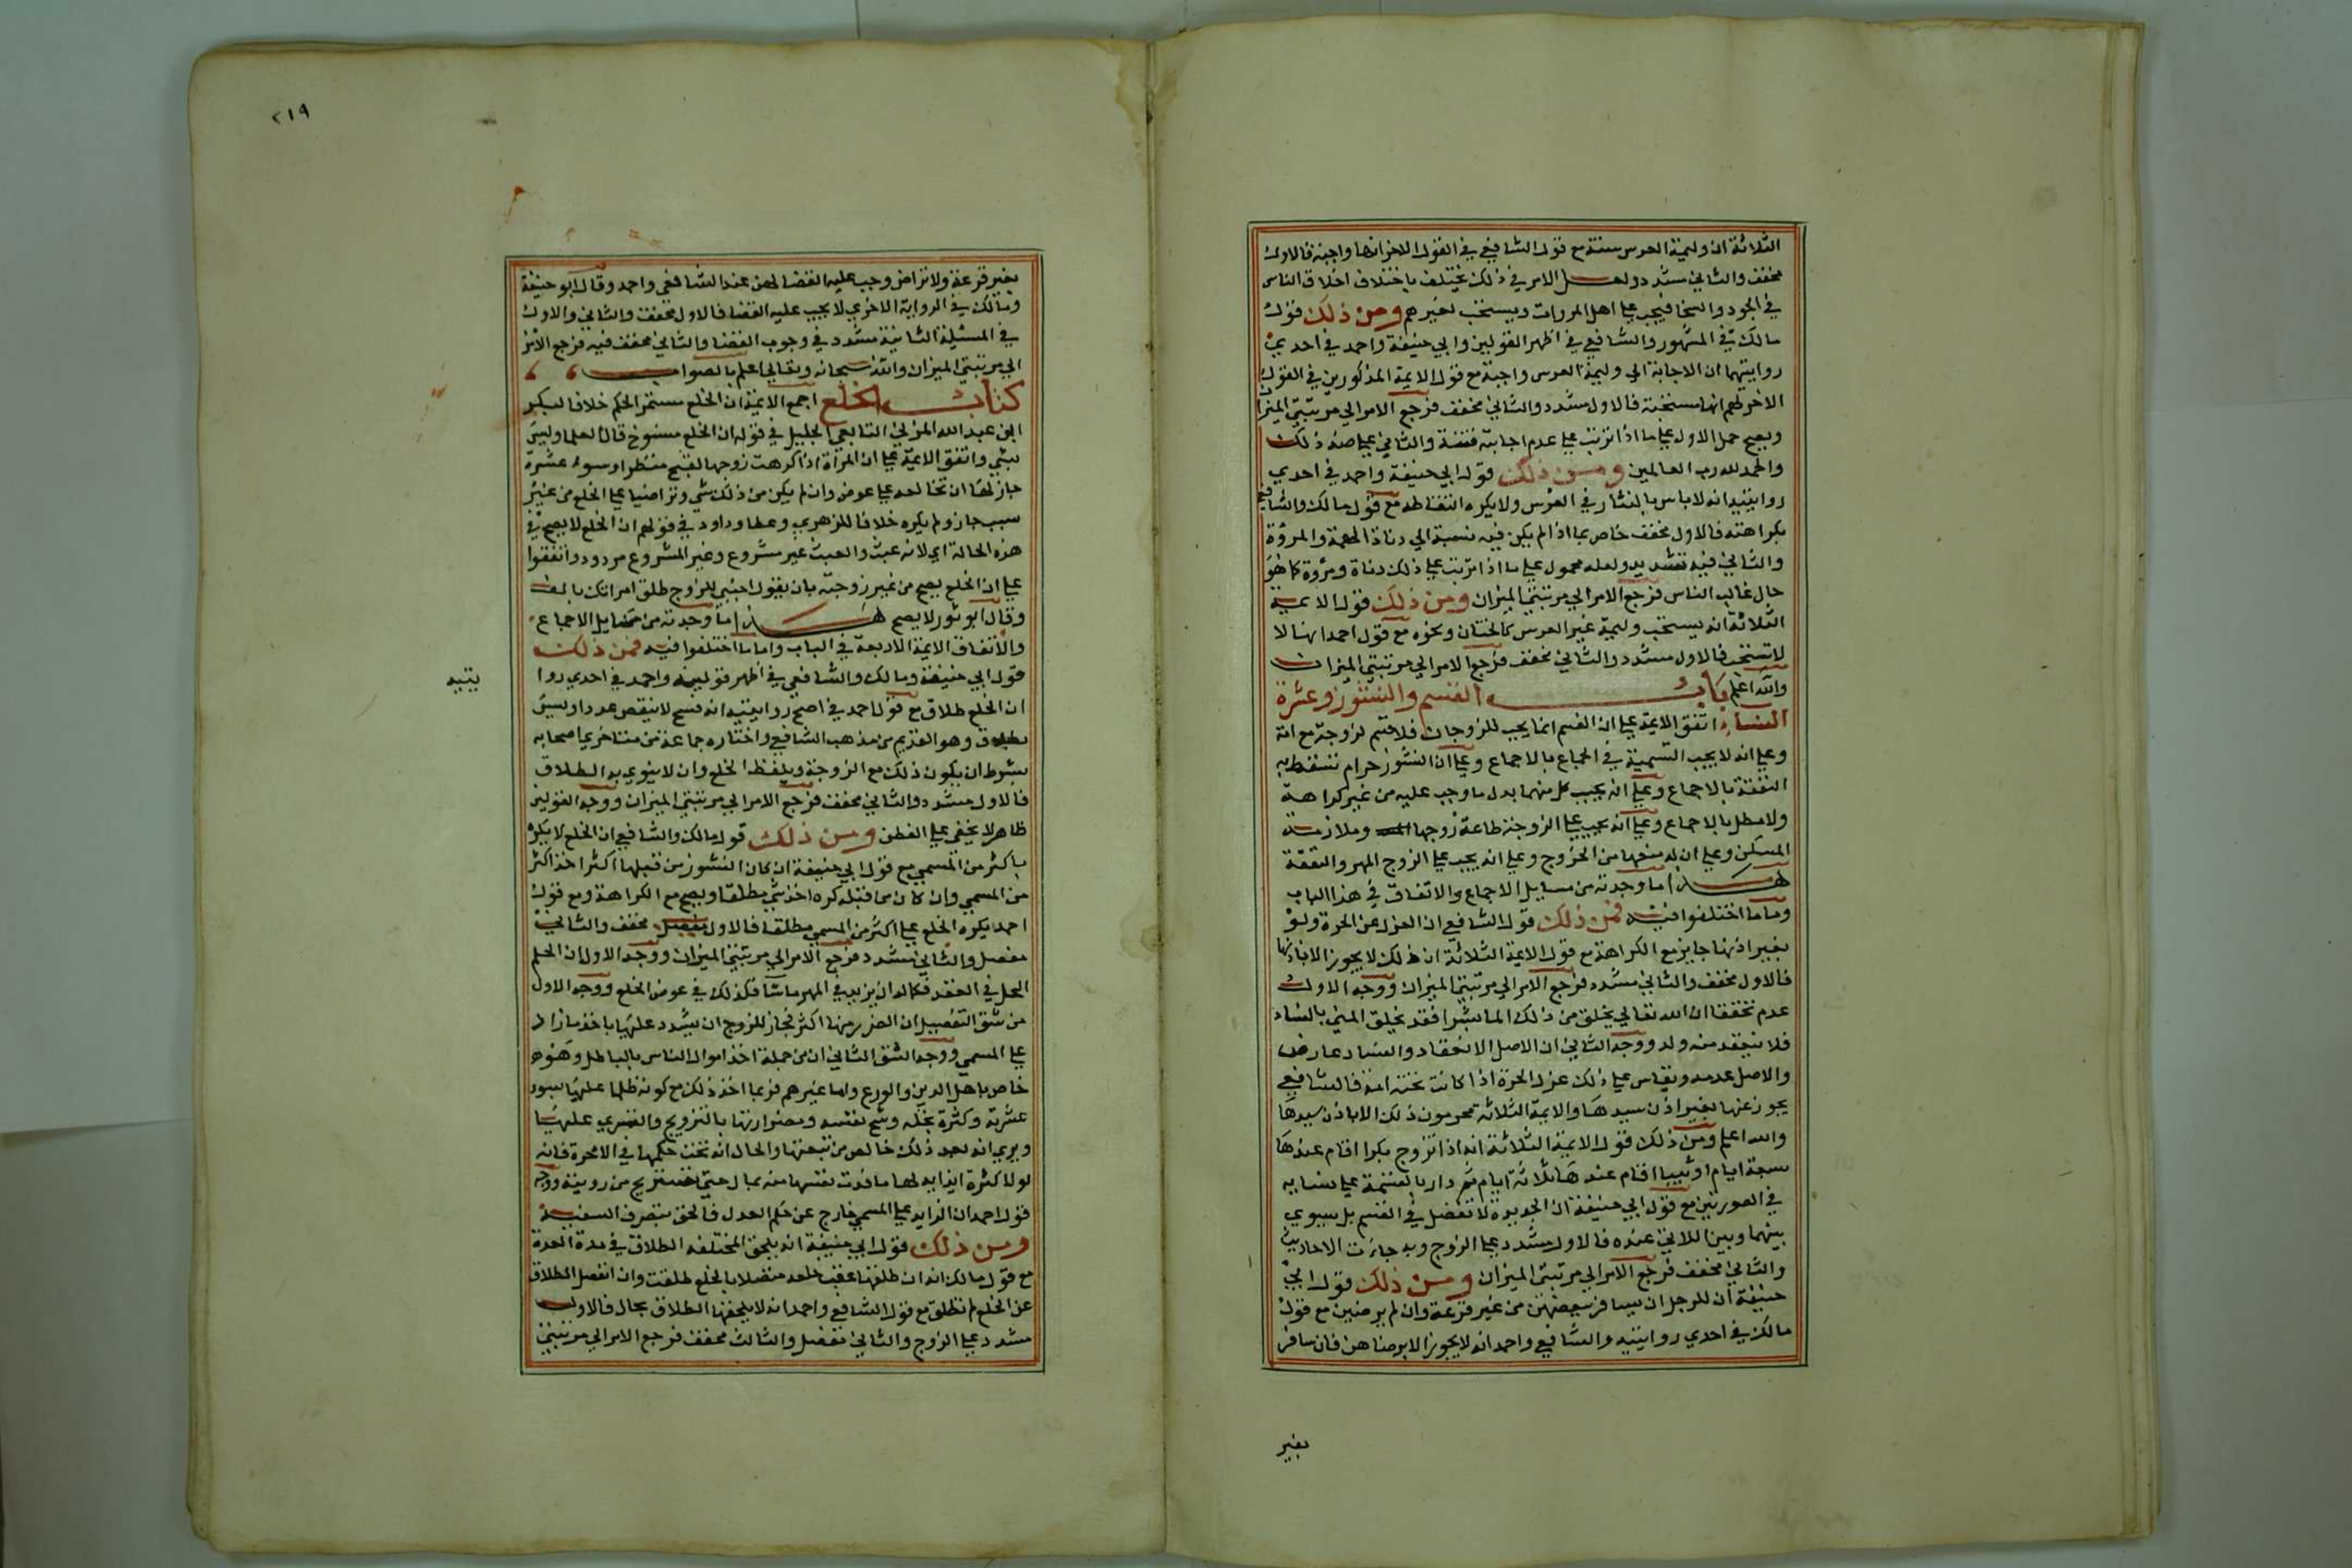 الثلاثة ان وليمة العرس سنة مع قول الشافعي في القول الاخر انها واجبة فالاول
مخفف والثاني مشدد ولعل الامر في ذلك يختلف باختلاف اخلاق الناس
في الجود والسخا فيجب علي اهل المروات ويستحب لغيرهم ومن ذلك قول
مالك في المشهور والشافعي في اظهر القولين وابي حنيفة واحمد في احدي
روايتيهما ان الاجابة الي وليمة العرس واجبة مع قول الايمة المذكورين في القول
الاخر لهم انها مستحبة فالاول مشدد والثاني مخفف فرجع الامر الي مرتبتي الميزان
ويصح حمل الاول علي ما اذا ترتب علي عدم اجابته فتنة والثاني علي ضد ذلك
والحمد لله رب العالمين ومن ذلك قول ابي حنيفة واحمد في احدي
روايتيه انه لا باس بالنثار في العرس ولا يكره التقاطه مع قول مالك والشافعي
بكراهته فالاول مخفف خاص بما اذا لم يكن فيه نسبة الي دناة الهمة والمروة
والثاني فيه تشديد ولعله محمول علي ما اذا ترتب علي ذلك دناة ومروة كما هو
حال غالب الناس فرجع الامر الي مرتبتي الميزان ومن ذلك قول الايمة
الثلاثة انه يستحب وليمة غير العرس كالختان ونحوه مع قول احمد انها لا
لا تستحب فالاول مشدد والثاني مخفف فرجع الامر الي مرتبتي الميزان
والله اعلم باب القسم والنشوز وعشرة
النساء اتفق الايمة علي ان القسم انما يجب للزوجات فلا قسم لزوجة مع امة
وعلي انه لا يجب التسمية في الجماع بالاجماع وعلي ان النشوز حرام تسقط به
النفقة بالاجماع وعلي انه يجب كل منهما بدل ما وجب عليه من غير كراهة
ولا مطل بالاجماع وعلي انه يجب علي الزوجة طاعة زوجها وملازمة
المسكن وعلي ان له منعها من الخروج وعلي انه يجب علي الزوج المهر والنفقة
هذا ما وجدته من مسايل الاجماع والاتفاق في هذا الباب
وما ما اختلفوا فيه فمن ذلك قول الشافعي ان العزل عن الحرة ولو
بغير اذنها جايز مع الكراهة مع قول الايمة الثلاثة ان ذلك لا يجوز الا باذنها
فالاول مخفف والثاني مشدد فرجع الامر الي مرتبتي الميزان ووجه الاول
عدم تحققنا ان الله تعالي يخلق من ذلك الما بشرا فقد يخلق المني بالفساد
فلا ينعقد منه ولد ووجه الثاني ان الاصل الانعقاد والفساد عارض
والاصل عدمه ويقاس علي ذلك عزل الحرة اذا كانت تحته امة فالشافعي
يجوز عنها بغير اذن سيدها والايمة الثلاثة يحرمون ذلك الا باذن سيدها
والله اعلم ومن ذلك قول الايمة الثلاثة انه اذا تزوج بكرا اقام عندها
سبعة ايام او ثيبا اقام عندها ثلاثة ايام ثم دار بالقسمة علي نسايه
في الصورتين مع قول ابي حنيفة ان الجديدة لا تفضل في القسم بل يسوي
بينها وبين اللاتي عنده فالاول مشدد علي الزوج وبه جات الاحاديث
والثاني مخفف فرجع الامر الي مرتبتي الميزان ومن ذلك قول ابي
حنيفة ان للرجل ان يسافر ببعضهن من غير قرعة وان لم يرضين مع قول
مالك في احدي روايتيه والشافعي واحمد انه لا يجوز الا برضاهن فان سافر
بغير
٢١٩
بغير قرعة ولا تراض وجب عليه القضا لهن عند الشافعي واحمد وقال ابو حنيفة
ومالك في الرواية الاخري لا يجب عليه القضا فالاول مخفف والثاني والاول
في المسئلة الثانية مشدد في وجوب القضا والثاني مخفف فيه فرجع الامر
الي مرتبتي الميزان والله سبحانه وتعالي اعلم بالصواب
كتاب الخلع اجمع الايمة ان الخلع مستمر الحكم خلافا لبكر
ابن عبد الله المزني التابعي الجليل في قوله ان الخلع منسوخ قال العلما وليس
بشي واتفق الايمة علي ان المراة اذا كرهت زوجها لقبح منظر او سوء عشرة
جاز لها ان تخالعه علي عوض وان لم يكن من ذلك شي وتراضيا علي الخلع من غير
سبب جاز ولم يكره خلافا للزهري وعطا وداود في قولهم ان الخلع لا يصح في
هذه الحالة اي لانه عبث والعبث غير مشروع وغير المشروع مردود واتفقوا
علي ان الخلع يصح من غير زوجته بان يقول اجنبي للزوج طلق امراتك بالف
وقال ابو ثور لا يصح هذا ما وجدته من مسايل الاجماع
والاتفاق الايمة الاربعة في الباب واما ما اختلفوا فيه فمن ذلك
قول ابي حنيفة ومالك والشافعي في اظهر قوليه واحمد في احدي روا
يتيه
ان الخلع طلاق مع قول احمد في اصح روايتيه انه فسخ لا ينقص عددا وليس
بطلاق وهو القديم من مذهب الشافعي واختاره جماعة من متاخري اصحابه
بشرط ان يكون ذلك مع الزوجة وبلفظ الخلع وان لا ينوي به الطلاق
فالاول مشدد والثاني مخفف فرجع الامر الي مرتبتي الميزان ووجه القولين
ظاهر لا يخفي علي الفطن ومن ذلك قول مالك والشافعي ان الخلع لا يكره
باكثر من المسمي مع قول ابي حنيفة ان كان النشوز من قبلها اكثر اخذ اكثر
من المسمي وان كان من قبله كره اخذ شي مطلقا ويصح مع الكراهة ومع قول
احمد يكره الخلع علي اكثر من المسمي مطلقا فالاول مخفف والثاني
مفصل والثاني مشدد فرجع الامر الي مرتبتي الميزان ووجه الاول ان الحكم
الحل في العقد فكما له ان يزيد في المهر ما شا فكذلك في عوض الخلع ووجه الاول
من شق التفصيل ان الضرر منها اكثر فجاز للزوج ان يشدد عليها باخذ ما زاد
علي المسمي ووجه الشق الثاني ان من جملة اخذ اموال الناس بالباطل وهو
خاص باهل الدين والورع واما غيرهم فربما اخذ ذلك مع كونه ظلما عليها بسوء
عشرته وكثرة بخله وشح نفسه ومضرارتها بالتزويج والتسري عليها
ويري انه بعد ذلك خالص من تبعتها والحال انه تحت حكمها في الاخرة فانه
لولا كثرة ايذايه لها ما فدت نفسها منه بمال حتي تستريح من رويته ووجه
قول احمد ان الزايد علي المسمي خارج عن حكم العدل فالحق بتصرف السفيه
ومن ذلك قول ابي حنيفة انه يلحق المختلعة الطلاق في مدة العدة
مع قول مالك انه ان طلقها عقب خلعه متصلا بالخلع طلقت وان انفصل الطلاق
عن الخلع لم تطلق مع قول الشافعي واحمد انه لا يلحقها الطلاق بحال فالاول
مشدد علي الزوج والثاني مفصل والثالث مخفف فرجع الامر الي مرتبتي